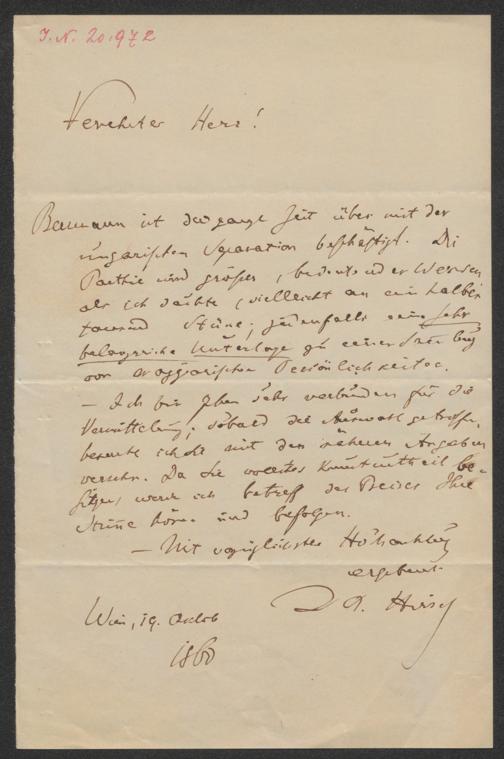 I. N. 20.972
Verehrter Herr!
Baumann ist die ganze Zeit über mit der
ungarischen Separation beschäftigt. Die
Parthie wird größer, bedeutender werden
als ich dachte, vielleicht an ein halbes
tausend Stüke; jedenfalls eine sehr
belangreiche Unterlage zu einer
von magyarischen Persönlichkeiten.
— Ich bin Ihnen sehr verbunden für die
Vermittelung; sobald die Auswahl getroffen,
ich sie mit den näheren Angaben
versehen. Da Sie Kunsturtheil be-
sitzen, werde ich betreff des Preises Ihre
Stimme hören und befolgen.
— Mit vorzüglichster Hochachtung
ergebenst
Dr. Hirsch
Wien, 19. Oktob
1860